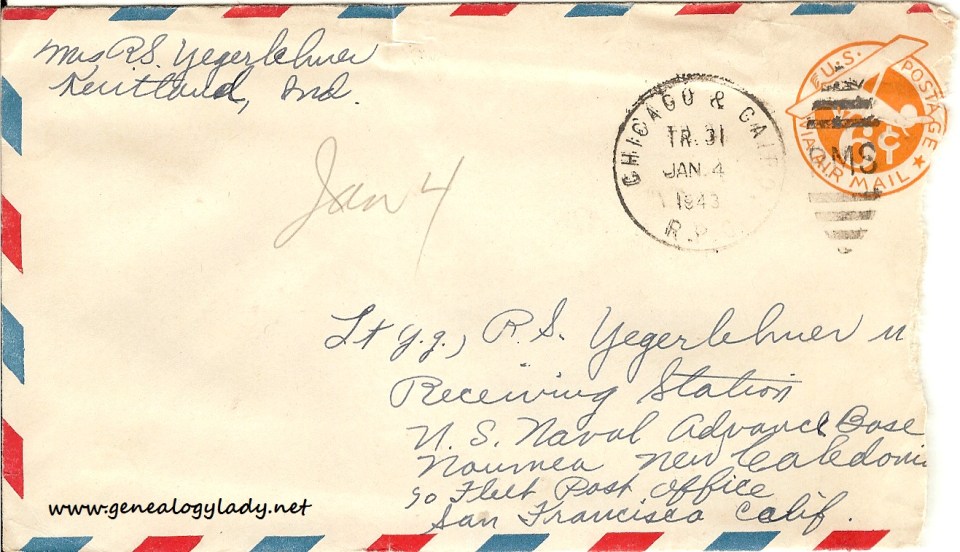 Mrs R.S. Yegerlehner
Kentland, Ind.
CHICAGO & CAIRO
TR. 31
JAN. 4
1943
R.P.O.
U.S. POSTAGE
VIA AIR MAIL
6¢
RMS
Jan 4
Lt y.g., R. S. Yegerlehner
Receiving Station
U. S. Naval Advance Base
Noumea New Caledoni
% Fleet Post Office
San Francisco Calif.
www.genealogylady.net